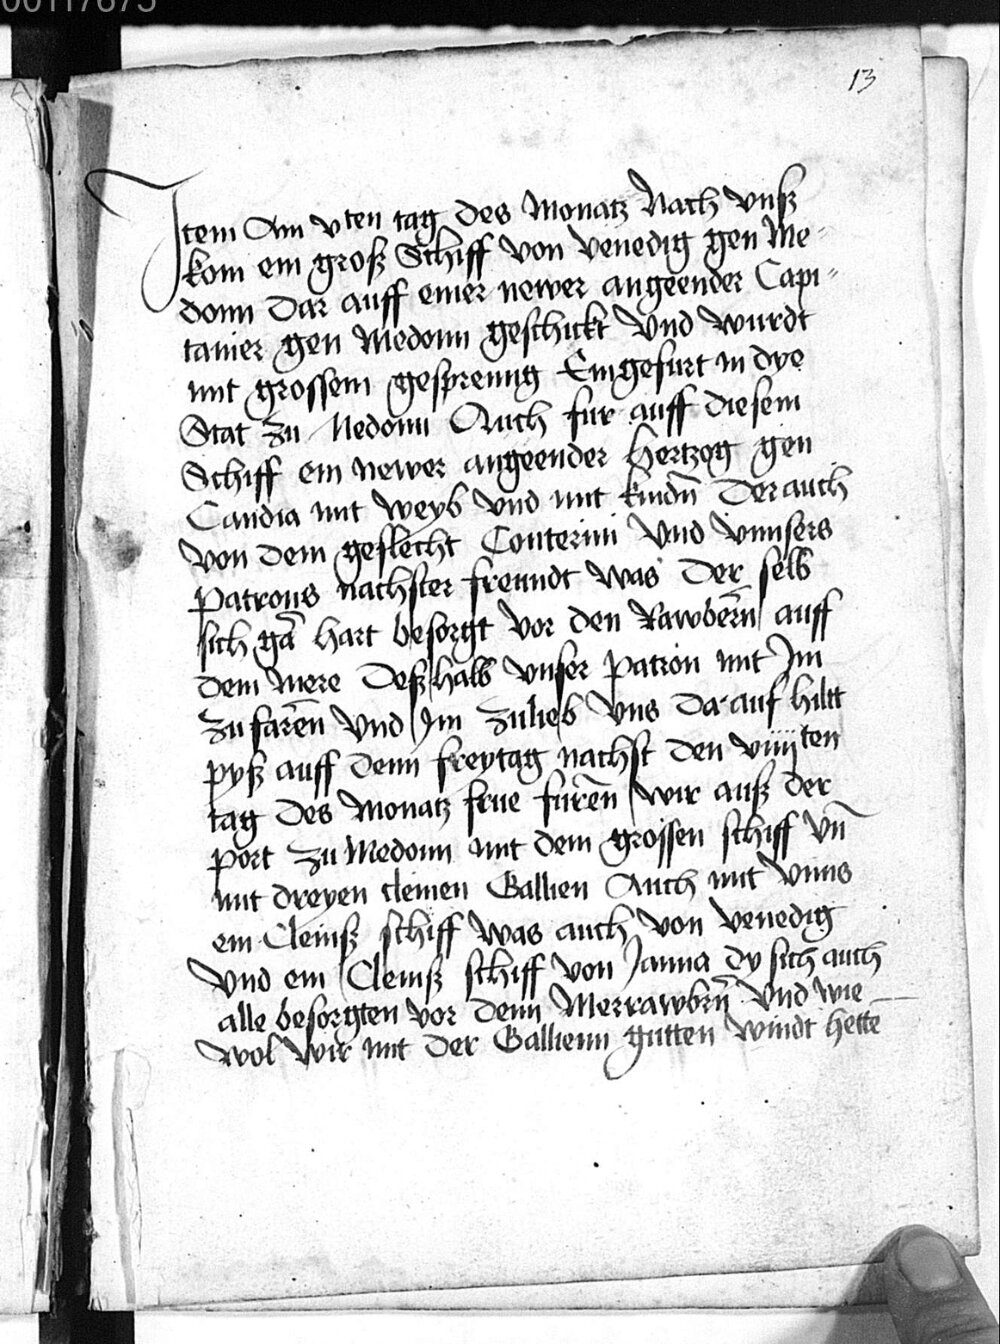 00117875
13
Item Am vten tag des Monatz Nach vnß
kom ein groß Schiff von venedig gen Me-
donn Dar auff einer newer angeender Capi-
tanier gen Medonn geschickt Vnd wurdt
mit grossem gesprenng Eingefurt in dye
Stat zu Medonn Auch fur auff diesem
Schiff ein newer angeender Hertzog gen
Candia mit weyb vnd mit kindn̄ Der auch
von dem geslecht Conterini Vnd vnnsers
Patrons nachster freundt was Der selb
sich gā hart besorgt vor den Rawbern̄ auff
dem Mere Deßhalb vnser patron mit Im
zu faren̄ Vnd Im zulieb vns darauf hiltt
pyß auff denn freytag nachst den viiijten
tag des Monatz frue furen̄ wir auß der
port zu Medonn mit dem grossen schiff vn̄
mit dreyen cleinen Gallien Auch mit vnns
ein Cleinß schiff was auch von venedig
Vnd ein Cleinß schiff von Janna dy sich auch
alle besorgten vor denn Merrawbrn̄ Vnd wie
wol wir mit der Gallienn gutten windt hette